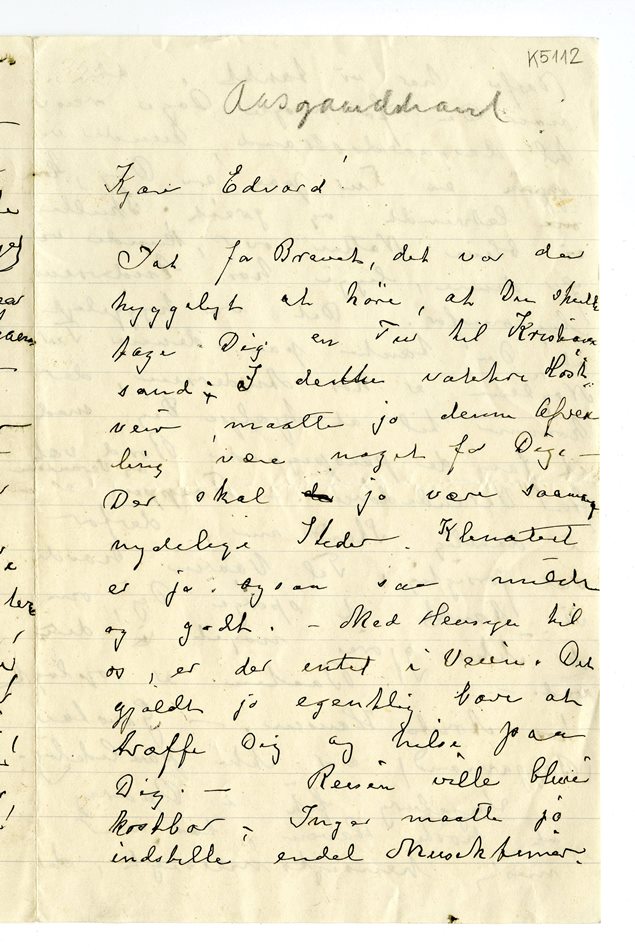 K5112
Aasgaardstrand
Kjære Edvard!
Tak for Brevet, det var da
hyggeligt at höre, at Du skulde
tage Dig en Tur til Kristian
sand; I dette vakkre Höst
veir, maatte jo denne Afvex
ling være noget for Dig. –
Der skal jo være saamange
nydelige Steder. Klimatet
er jo ogsaa saa mildt
og godt. – Med Hensyn til
os, er der intet i Veien. Det
gjaldt jo egentlig bare at
træffe Dig og hilse paa
Dig. – Reisen vilde blive
kostbar – Inger maatte jo
indstille endel Musiktimer.